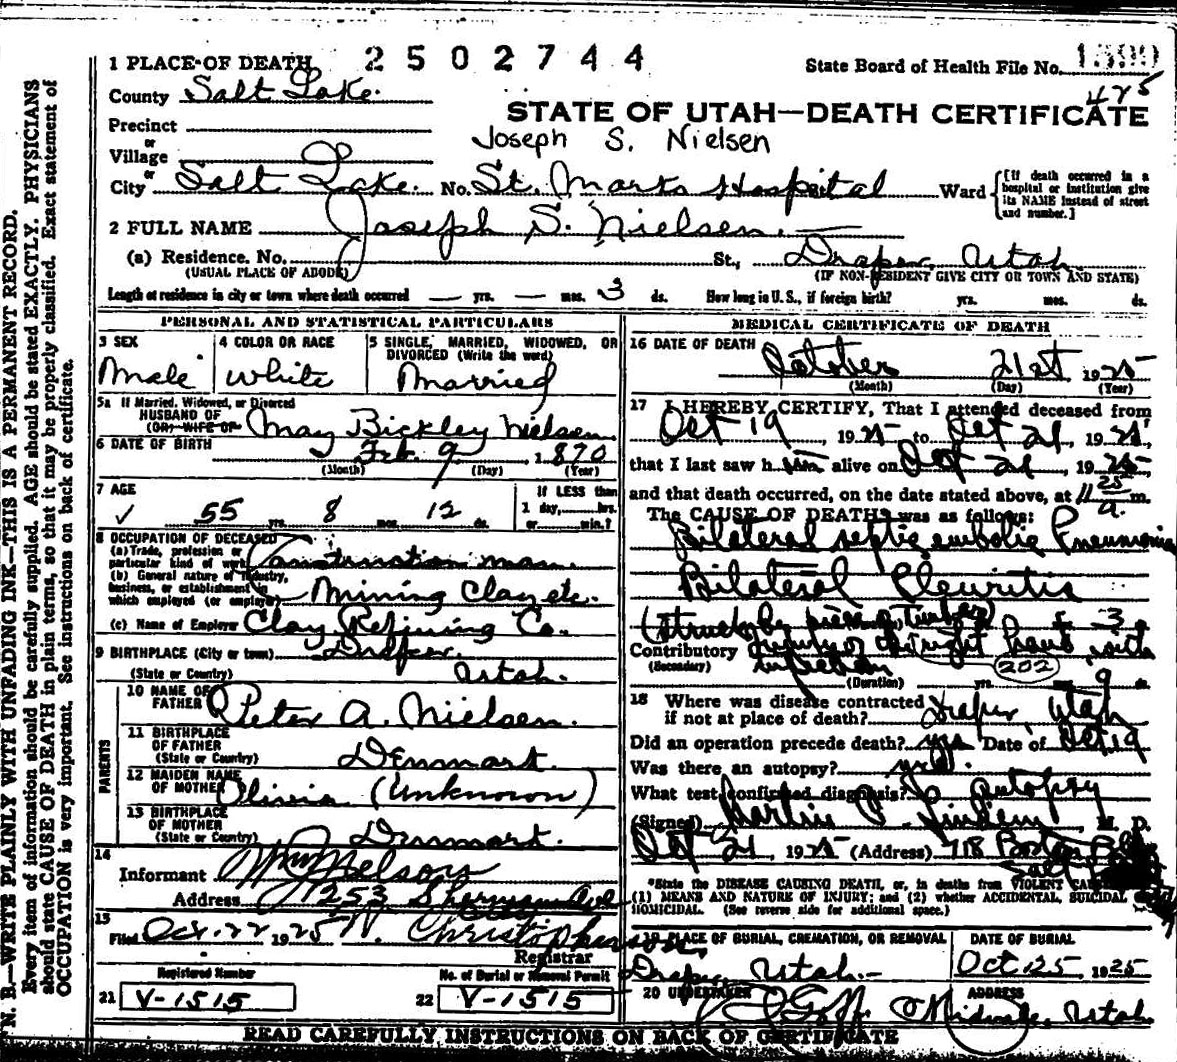 1 PLACE OF DEATH 2502744 State Board of Health File No. 1599
County Salt Lake. 475
STATE OF UTAH—DEATH CERTIFICATE
Precinct
or
Village
Joseph S. Nielsen
City or Salt Lake. No. St. Marks Hospital Ward [If death occurred in a hospital or institution give its NAME instead of street and number.]
2 FULL NAME Joseph S. Nielsen.
(a) Residence. No. St., Draper, Utah.
(USUAL PLACE OF ABODE) (IF NON-RESIDENT GIVE CITY OR TOWN AND STATE)
Length of residence in city or town where death occurred — yrs. — mos. 3 ds. How long in U. S., if foreign birth? yrs. mos. ds.
PERSONAL AND STATISTICAL PARTICULARS
3 SEX 4 COLOR OR RACE 5 SINGLE, MARRIED, WIDOWED, OR DIVORCED (Write the word)
Male White Married
5a If Married, Widowed, or Divorced
HUSBAND OF
(OR) WIFE OF May Bickley Nielsen
6 DATE OF BIRTH Feb. 9 1870
(Month) (Day) (Year)
7 AGE If LESS than
55 yrs. 8 mos. 12 ds. 1 day, hrs.
or min.?
8 OCCUPATION OF DECEASED
(a) Trade, profession or
particular kind of work man.
(b) General nature of industry,
business, or establishment in
which employed (or employer) Mining Clay etc.
(c) Name of Employer Clay Refining Co.
9 BIRTHPLACE (City or town) Draper.
(State or Country) Utah.
PARENTS
10 NAME OF
FATHER Peter A. Nielsen.
11 BIRTHPLACE
OF FATHER
(State or Country) Denmark.
12 MAIDEN NAME
OF MOTHER Olivia (Unknown)
13 BIRTHPLACE
OF MOTHER
(State or Country) Denmark.
14
Informant
Address 1253 Sherman Ave
City
15
Filed Oct. 22 1925 W. Christopherson
Registrar
Registered Number No. of Burial or Removal Permit
21 V-1515 22 V-1515
MEDICAL CERTIFICATE OF DEATH
16 DATE OF DEATH October 21st 1925
(Month) (Day) (Year)
17 I HEREBY CERTIFY, That I attended deceased from
Oct 19, 1925 to Oct 21, 1925,
that I last saw him alive on Oct 21, 1925,
and that death occurred, on the date stated above, at 11 25 a. m.
The CAUSE OF DEATH was as follows:
Bilateral septic embolic Pneumonia
Bilateral Pleuritis
(Struck by piece of Timber) 3
Contributory injury of right hand with
(Secondary) infection 202
(Duration) yrs. mos. 9 ds.
18 Where was disease contracted
if not at place of death? Draper, Utah
Did an operation precede death? yes Date of Oct 19
Was there an autopsy? yes.
What test confirmed diagnosis? Autopsy
(Signed) M. D.
Oct 21, 1925 (Address) 718 Boston Bldg
Salt
*State the DISEASE CAUSING DEATH, or, in deaths from VIOLENT
(1) MEANS AND NATURE OF INJURY; and (2) whether ACCIDENTAL, SUICIDAL
HOMICIDAL. (See reverse side for additional space.)
19 PLACE OF BURIAL, CREMATION, OR REMOVAL DATE OF BURIAL
Draper, Utah. Oct 25, 1925
20 UNDERTAKER ADDRESS
Midvale, Utah.
READ CAREFULLY INSTRUCTIONS ON BACK OF CERTIFICATE
N. B.—WRITE PLAINLY WITH UNFADING INK—THIS IS A PERMANENT RECORD.
Every item of information should be carefully supplied. AGE should be stated EXACTLY. PHYSICIANS
should state CAUSE OF DEATH in plain terms, so that it may be properly classified. Exact statement of
OCCUPATION is very important. See instructions on back of certificate.